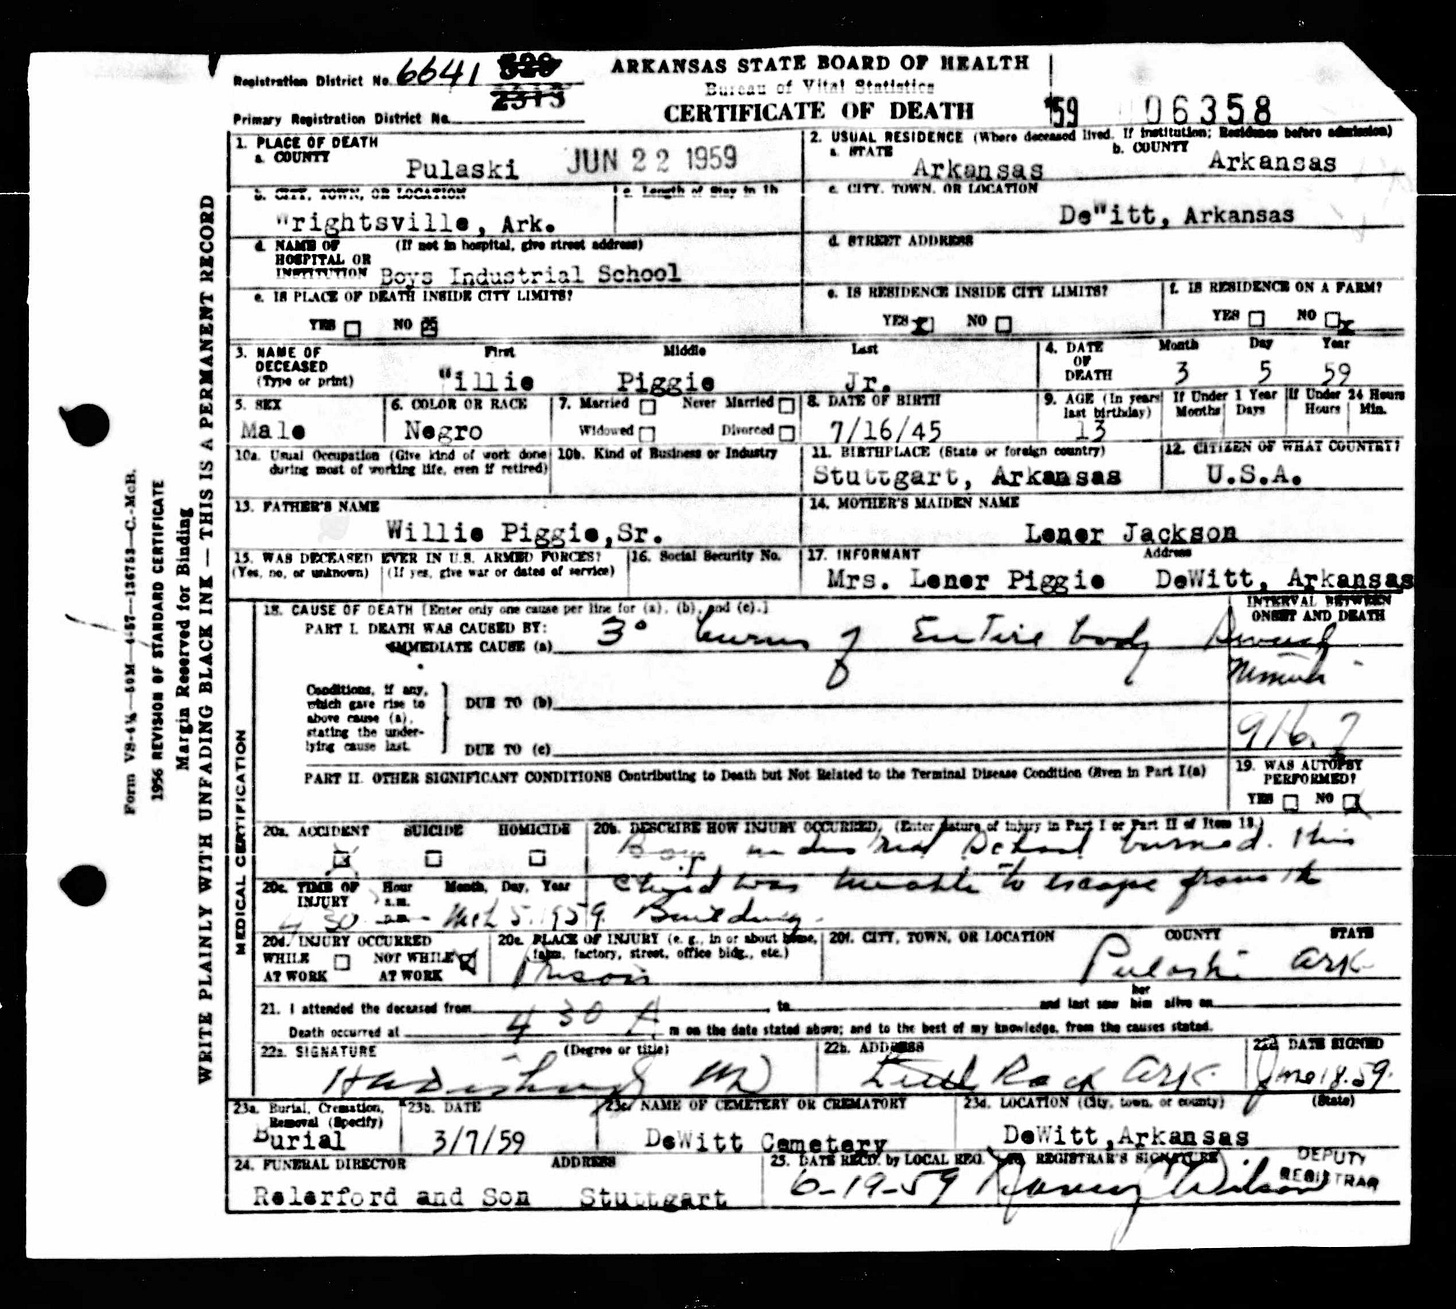 Registration District No. 6641
2313
Primary Registration District No.
ARKANSAS STATE BOARD OF HEALTH
Bureau of Vital Statistics
CERTIFICATE OF DEATH
'59 06358
1. PLACE OF DEATH
a. COUNTY
Pulaski
JUN 22 1959
2. USUAL RESIDENCE (Where deceased lived. If institution; Residence before admission)
a. STATE Arkansas
b. COUNTY Arkansas
b. CITY, TOWN, OR LOCATION
"rightsville, Ark.
c. Length of Stay in 1b
c. CITY, TOWN, OR LOCATION
De"itt, Arkansas
d. NAME OF (If not in hospital, give street address)
HOSPITAL OR
INSTITUTION Boys Industrial School
d. STREET ADDRESS
e. IS PLACE OF DEATH INSIDE CITY LIMITS?
YES NO
e. IS RESIDENCE INSIDE CITY LIMITS?
YES x NO
f. IS RESIDENCE ON A FARM?
YES NO x
3. NAME OF DECEASED (Type or print)
First Middle Last
"illie Piggie Jr.
4. DATE OF DEATH
Month Day Year
3 5 59
5. SEX
Male
6. COLOR OR RACE
Negro
7. Married Never Married
Widowed Divorced
8. DATE OF BIRTH
7/16/45
9. AGE (In years last birthday)
13
If Under 1 Year
Months Days
If Under 24 Hours
Hours Min.
10a. Usual Occupation (Give kind of work done during most of working life, even if retired)
10b. Kind of Business or Industry
11. BIRTHPLACE (State or foreign country)
Stuttgart, Arkansas
12. CITIZEN OF WHAT COUNTRY?
U.S.A.
13. FATHER'S NAME
Willie Piggie,Sr.
14. MOTHER'S MAIDEN NAME
Lener Jackson
15. WAS DECEASED EVER IN U.S. ARMED FORCES?
(Yes, no, or unknown) (If yes, give war or dates of service)
16. Social Security No.
17. INFORMANT Address
Mrs. Lener Piggie DeWitt, Arkansas
18. CAUSE OF DEATH [Enter only one cause per line for (a), (b), and (c).]
PART I. DEATH WAS CAUSED BY:
IMMEDIATE CAUSE (a) 3° burns of Entire body
INTERVAL BETWEEN ONSET AND DEATH
Conditions, if any, which gave rise to above cause (a), stating the underlying cause last.
DUE TO (b)
DUE TO (c)
916.7
PART II. OTHER SIGNIFICANT CONDITIONS Contributing to Death but Not Related to the Terminal Disease Condition Given in Part I(a)
19. WAS AUTOPSY PERFORMED?
YES NO
20a. ACCIDENT SUICIDE HOMICIDE
20b. DESCRIBE HOW INJURY OCCURRED. (Enter nature of injury in Part I or Part II of Item 18.)
Boys industrial School burned. This
child was unable to escape from the
Building.
20c. TIME OF INJURY
Hour Month, Day, Year
a.m.
p.m.
4 30 Mch 5. 1959
20d. INJURY OCCURRED
WHILE AT WORK NOT WHILE AT WORK
20e. PLACE OF INJURY (e. g., in or about home, farm, factory, street, office bldg., etc.)
Prison
20f. CITY, TOWN, OR LOCATION COUNTY STATE
Pulaski Ark
21. I attended the deceased from , to and last saw her him alive on
Death occurred at 4 30 A m on the date stated above; and to the best of my knowledge, from the causes stated.
22a. SIGNATURE (Degree or title)
MD
22b. ADDRESS
Little Rock Ark.
DATE SIGNED
June 18.59.
23a. Burial, Cremation, Removal (Specify)
Burial
23b. DATE
3/7/59
23c. NAME OF CEMETERY OR CREMATORY
DeWitt Cemetery
23d. LOCATION (City, town, or county) (State)
DeWitt,Arkansas
24. FUNERAL DIRECTOR ADDRESS
Relerford and Son Stuttgart
25. DATE RECD. by LOCAL REG.
6-19-59
REGISTRAR'S SIGNATURE
Nancy Wilson
DEPUTY REGISTRAR
Form VS-4¼—50M—4-57—136753—C.-McB.
1956 REVISION OF STANDARD CERTIFICATE
Margin Reserved for Binding
WRITE PLAINLY WITH UNFADING BLACK INK — THIS IS A PERMANENT RECORD
MEDICAL CERTIFICATION